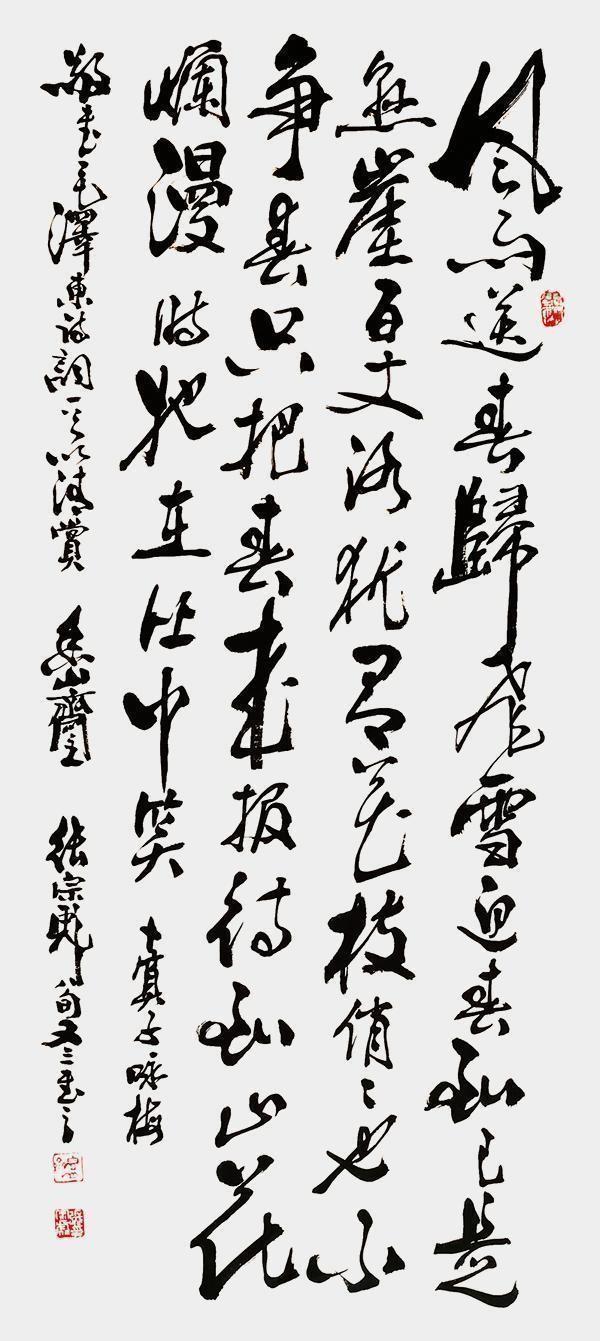 風雨送春歸飛雪迎春到已是
懸崖百丈冰猶有花枝俏〻也不
爭春只把春來報待到山花
爛漫時她在丛中笑 卜算子咏梅
敬書毛澤東詩詞一首以清賞 山齋主 張宗 八旬又三書之